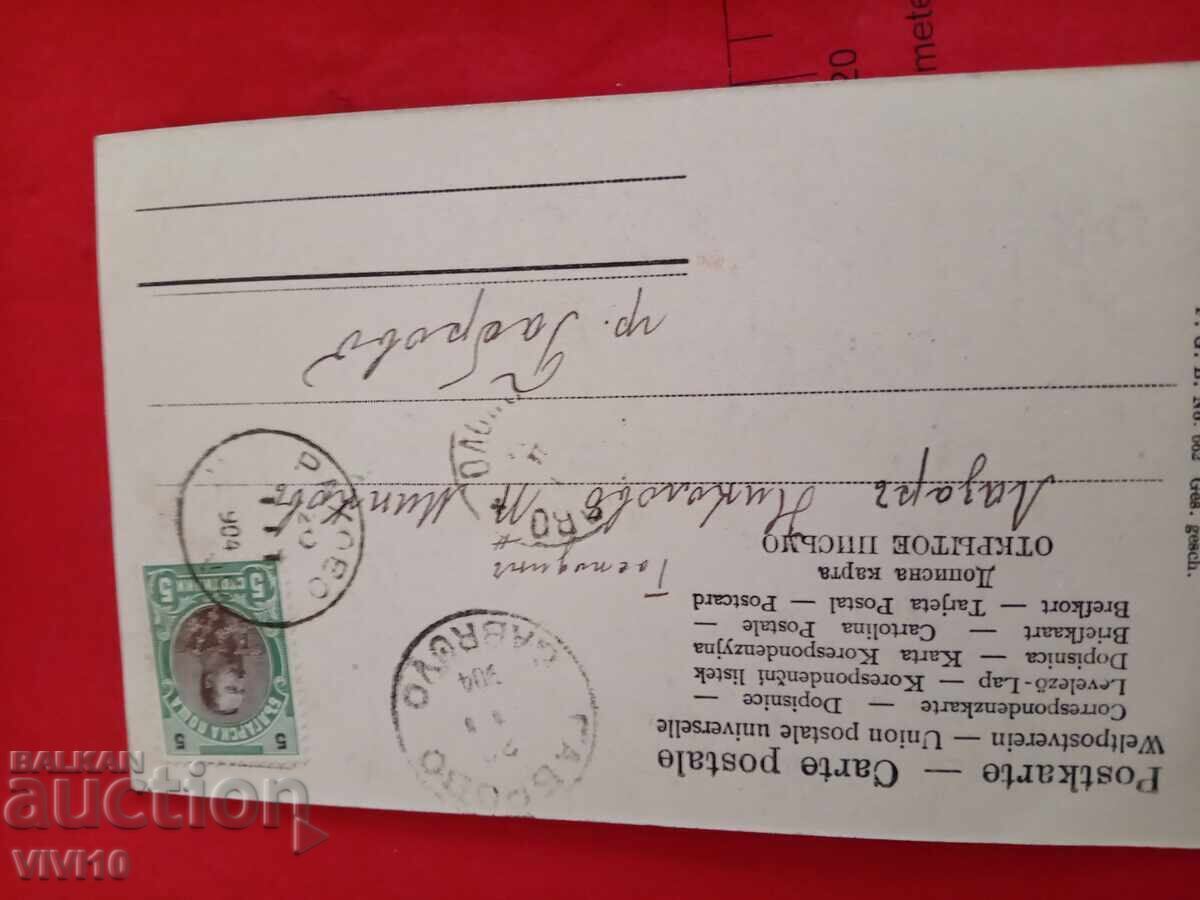 Postkarte — Carte postale
Weltpostverein — Union postale universelle
Correspondenzkarte — Dopisnice —
Levelező-Lap — Korespondenční listek
Dopisnica — Karta Korespondenzyjna
Briefkaart — Cartolina Postale —
Brefkort — Tarjeta Postal — Postcard
Дописна карта
ОТКРЫТОЕ ПИСЬМО
Господинъ
Лазаръ Николовъ
гр. Габрово
Ges. gesch.
БЪЛГАРСКА ПОЩА
5 5
5 СТОТИНКИ 5
ГАБРОВО
GABROVO
904
904
20
mete
BALKAN
auction
VIVI10